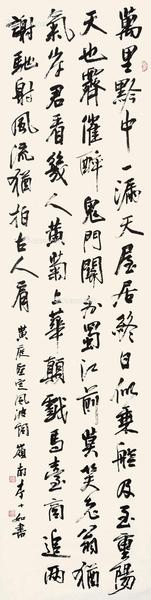 萬里黔中一漏天屋居終日似乘船及至重陽
天也霽催醉鬼門關外蜀江前莫笑老翁猶
氣岸君看幾人黃菊上華顛戲馬臺南追兩
謝馳射風流猶拍古人肩 黃庭堅定風波詞 嶺南李小如書